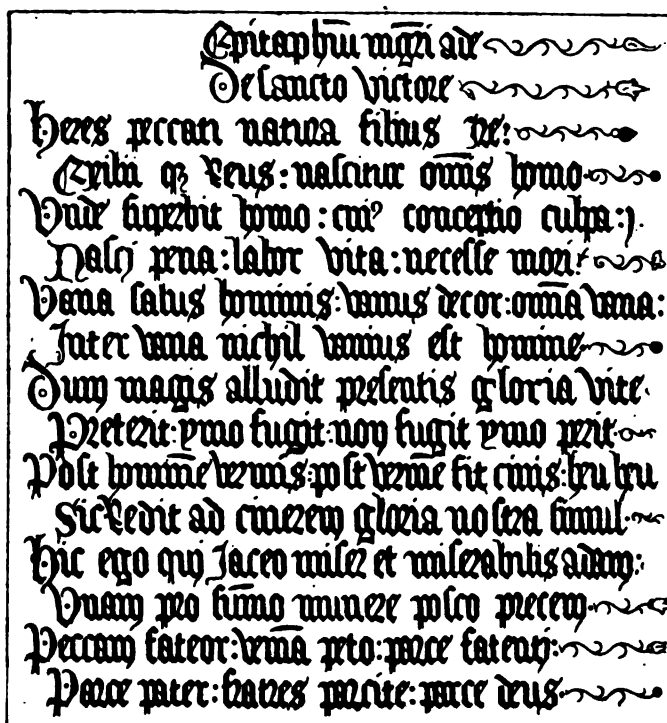 Epitaphiū mgr̄i ade
De sancto victore
Heres peccati natura filius Ire:
Exilii qꝫ Reus: nascitur om̄is homo
Vnde superbit homo: cuiꝰ conceptio culpa:
Nasci pena: labor vita: necesse mori:
Vana salus hominis: vanus decor: om̄ia vana:
Inter vana nichil vanius est homine
Dum magis alludit presentis gloria vite
Preterit: ymo fugit: non fugit ymo perit
Post hominē vermis: post vermē fit cinis: heu heu
Sic Redit ad cinerem gloria nostra simul
Hic ego qui Jaceo miser et miserabilis adam:
Vnam pro sum̄o munere posco precem
Peccavi fateor: veniā peto: parce fatenti:
Parce pater: fratres parcite: parce deus